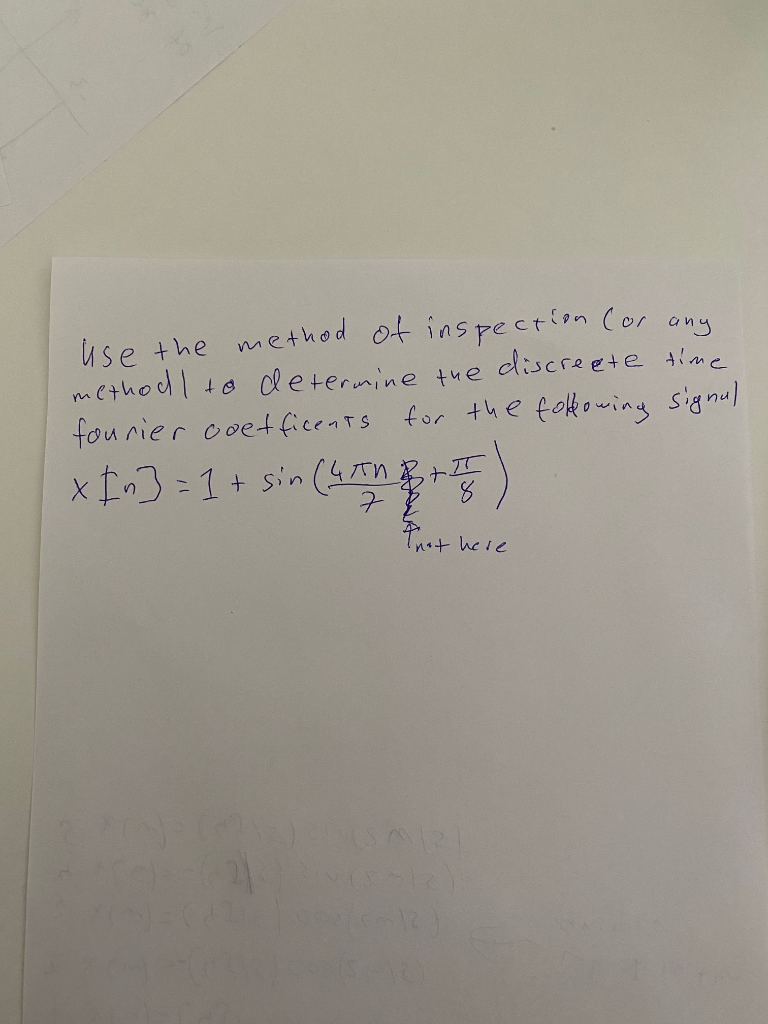 Use the method of inspection (or any
method) to determine the discreete time
fourier coefficents for the following signal
x[n] = 1 + sin(4πn/7 + π/8)
↑not here